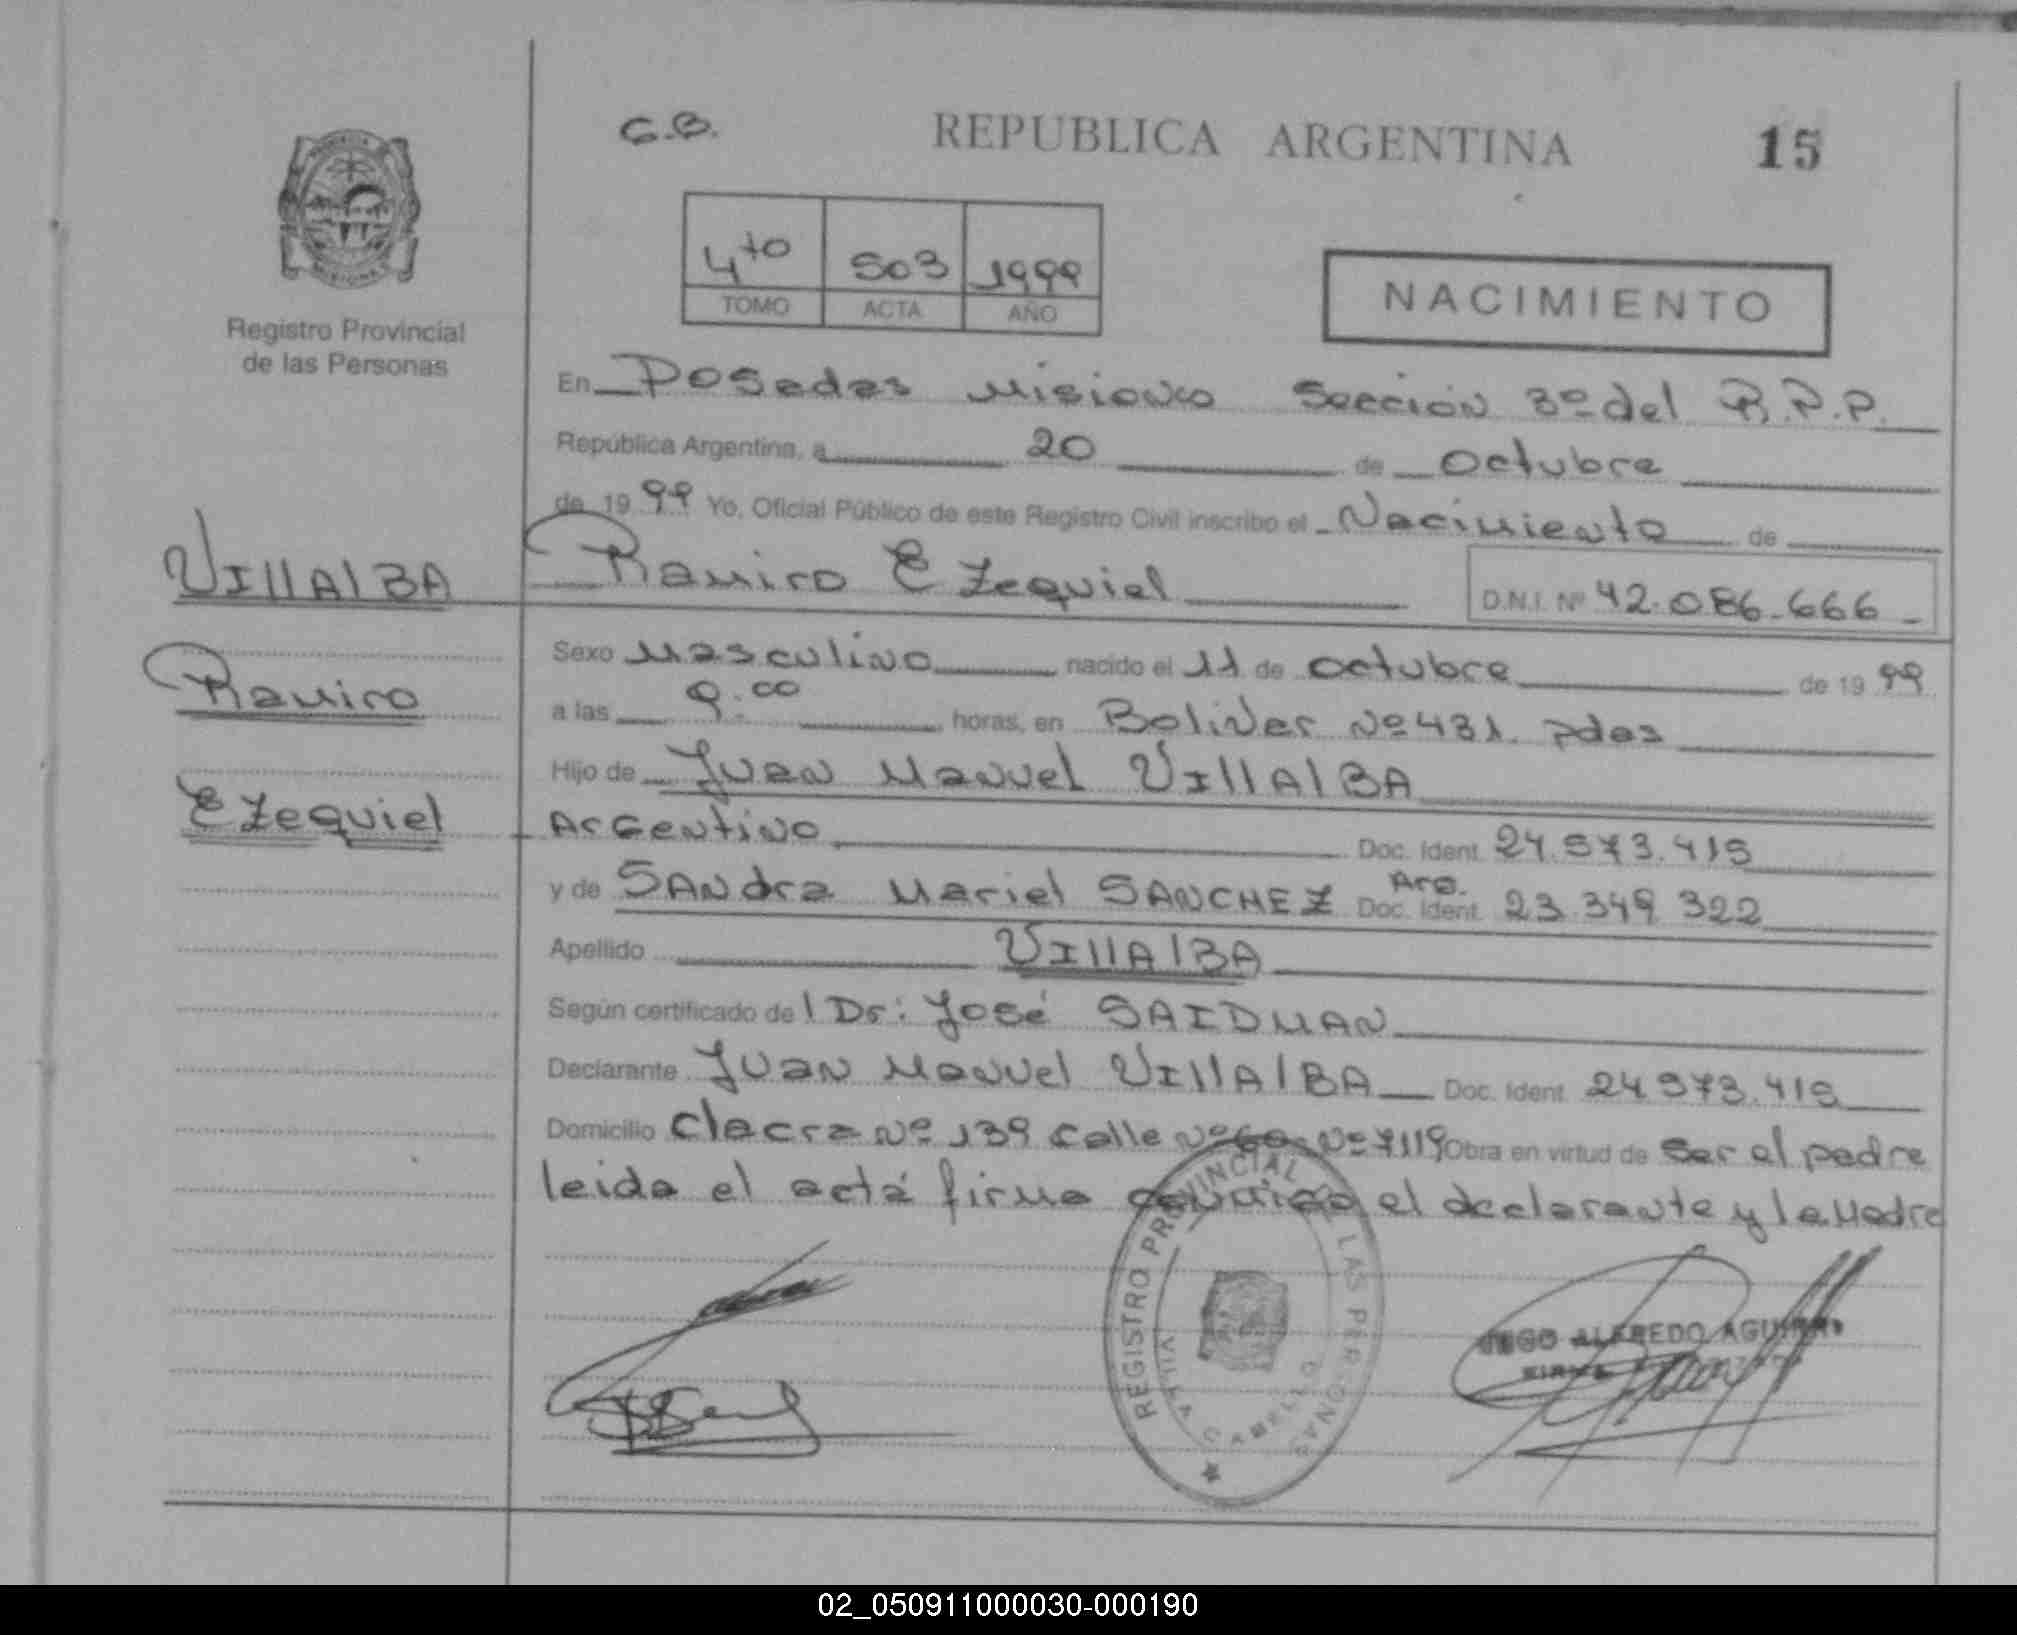 G.B. REPUBLICA ARGENTINA 15
4to 503 1999
TOMO ACTA AÑO
NACIMIENTO
Registro Provincial
de las Personas
En Posadas Misiones Sección 3º del R.P.P.
República Argentina, a 20 de Octubre
de 1999 Yo, Oficial Público de este Registro Civil inscribo el Nacimiento de
VIllAlBA
Ramiro
Ezequiel
Ramiro Ezequiel D.N.I. Nº 42.086.666
Sexo Masculino nacido el 11 de octubre de 1999
a las 9.00 horas, en Bolivar Nº 431. Pdas
Hijo de Juan Manuel VIllAlBA
Argentino Doc. Ident. 24.573.415
y de SANdra Mariel SANCHEZ Arg. Doc. Ident. 23.349.322
Apellido VIllAlBA
Según certificado del Dr: José SAIDMAN
Declarante Juan Manuel VIllAlBA Doc. Ident. 24.573.415
Domicilio Chacra Nº 139 Calle Nº Nº 7119 Obra en virtud de ser el padre
leida el acta firma conmigo el declarante y la Madre
REGISTRO PROVINCIAL DE LAS PERSONAS
VILLA CABELLO
ALFREDO
02_050911000030-000190